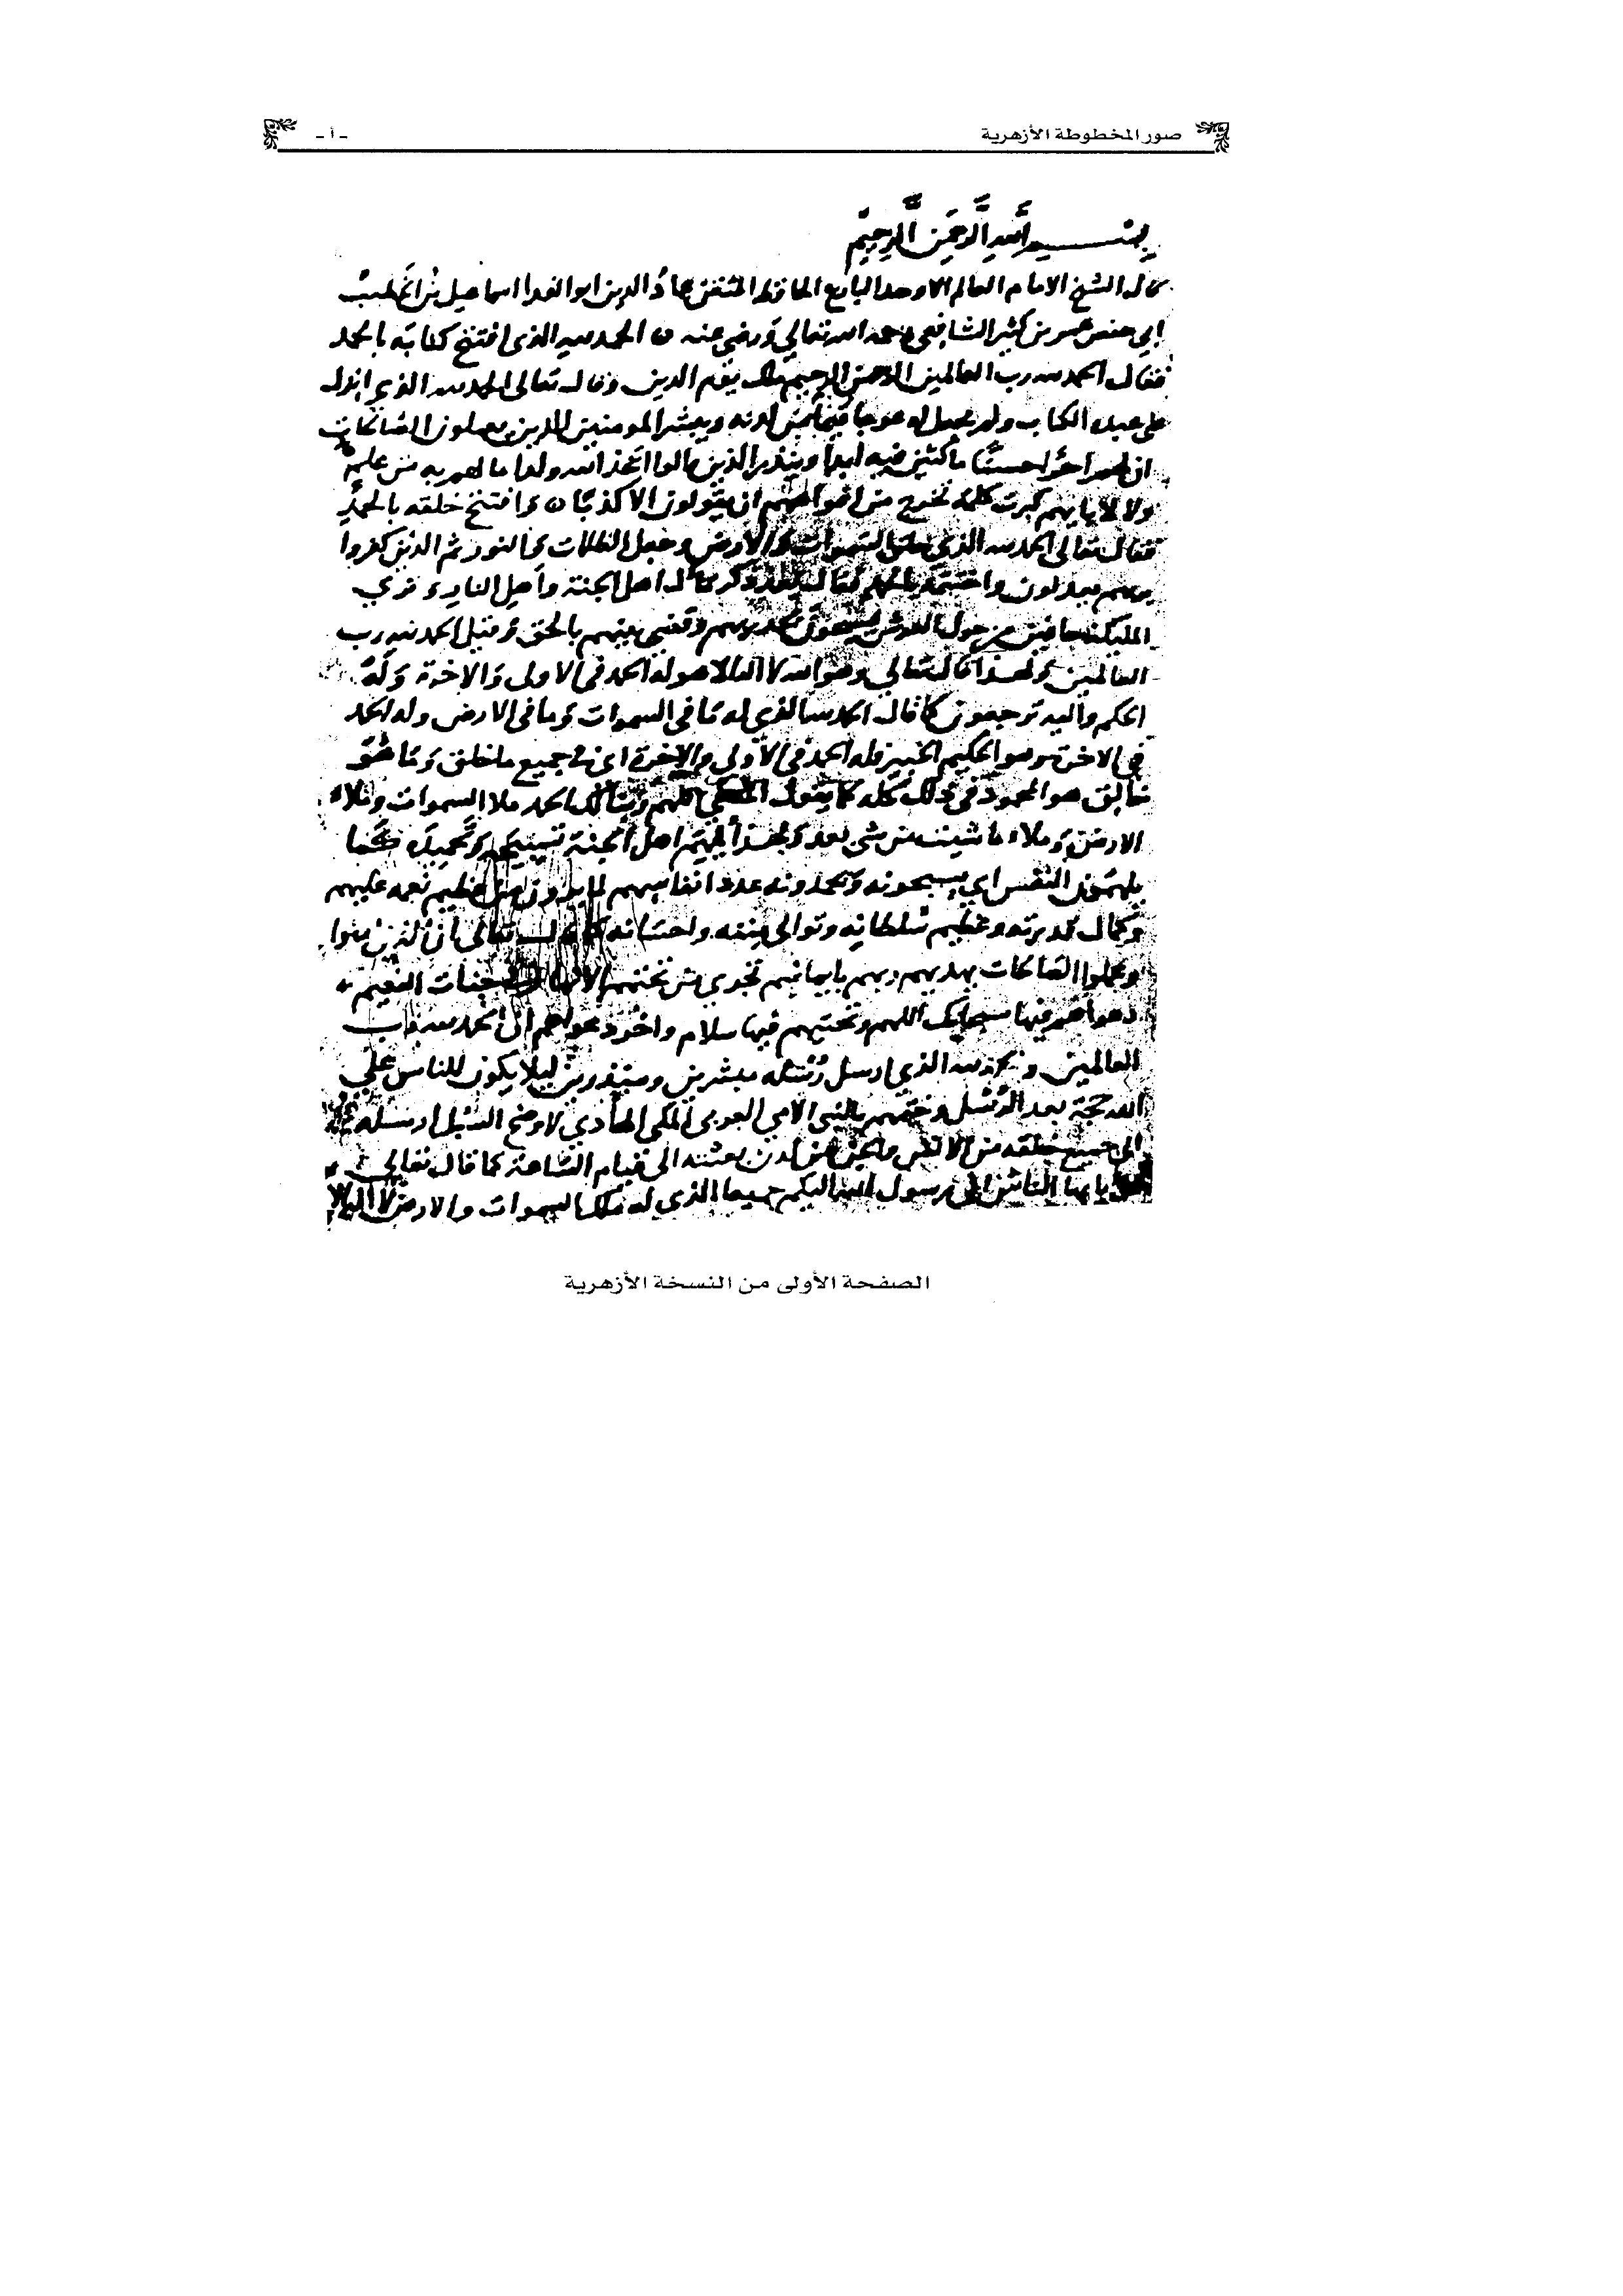 صور المخطوطة الأزهرية
- أ -
بسم الله الرحمن الرحيم
قال الشيخ الامام العالم الاوحد البارع الحافظ المتقن عماد الدين ابو الفدا اسماعيل بن الخطيب
ابي حفص عمر بن كثير الشافعي رحمه الله تعالي ورضي عنه الحمد لله الذي افتتح كتابه بالحمد
فقال الحمد لله رب العالمين الرحمن الرحيم ملك يوم الدين وقال تعالى الحمد لله الذي انزل
على عبده الكتاب ولم يجعل له عوجا قيما من لدنه ويبشر المومنين الذين يعملون الصالحات
ان لهم اجرا حسنا ماكثين فيه ابدا وينذر الذين قالوا اتخذ الله ولدا ما لهم به من علم
ولا لابايهم كبرت كلمة تخرج من افواههم ان يقولون الا كذبا وافتتح خلقه بالحمد
فقال تعالى الحمد لله الذي خلق السموات والارض وجعل الظلمات والنور ثم الذين كفروا
بربهم يعدلون واختتمه بالحمد فقال بعد ذكر مآل اهل الجنة واهل النار وتري
المليكة حافين من حول العرش يسبحون بحمد ربهم وقضي بينهم بالحق وقيل الحمد لله رب
العالمين ولهذا قال تعالي وهو الله لا اله الا هو له الحمد في الاولى والاخرة وله
الحكم واليه ترجعون كما قال الحمد لله الذي له ما في السموات وما في الارض وله الحمد
في الاخرة وهو الحكيم الخبير فله الحمد في الاولى والاخرة اي في جميع ما خلق وما هو
خالق هو المحمود في ذلك كله كما يقول المصلي اللهم ربنا لك الحمد ملا السموات وملاء
الارض وملاء ما شيت من شي بعد ولهذا يلهم اهل الجنة تسبيحه وتحميده كما
يلهمون النفس اي يسبحونه ويحمدونه عدد انفاسهم لما يرون من عظيم نعمه عليهم
وكمال قدرته وعظيم سلطانه وتوالى مننه واحسانه كما قال تعالى ان الذين امنوا
وعملوا الصالحات يهديهم ربهم بايمانهم تجري من تحتهم الانهار في جنات النعيم
دعواهم فيها سبحانك اللهم وتحيتهم فيها سلام واخر دعواهم ان الحمد لله رب
العالمين والحمد لله الذي ارسل رسله مبشرين ومنذرين ليلا يكون للناس علي
الله حجة بعد الرسل وختمهم بالنبي الامي العربي المكي الهادي لاوضح السبل ارسله
الى جميع خلقه من الانس والجن من لدن بعثته الى قيام الساعة كما قال تعالى
يا ايها الناس اني رسول الله اليكم جميعا الذي له ملك السموات والارض لا اله الا
الصفحة الأولى من النسخة الأزهرية